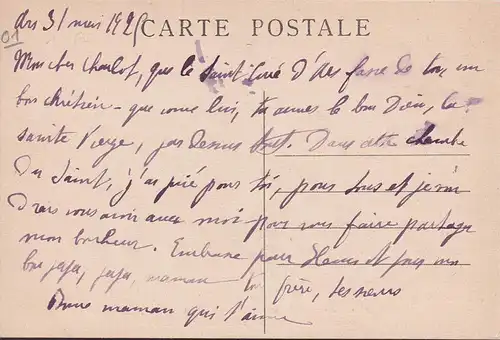 Ars 31 mai 192
CARTE POSTALE
01
Mon cher Charlot, que le Saint Curé d'Ars fasse de toi, un
bon chrétien - que comme lui, tu aimes le bon Dieu, la
sainte Vierge, par dessus tout. Dans cette chambre
du Saint, j'ai prié pour toi, pour tous et je vou
drais vous avoir avec moi pour vous faire partager
mon bonheur. Embrasse pour et pour mon
bon papa, maman ton frère, tes sœurs
Bonne maman qui t'aime